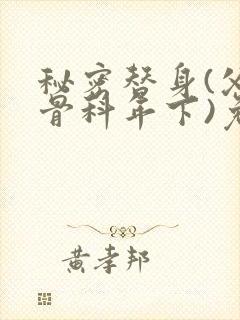 秘密替身(父
骨科年下)免
黄孝邦